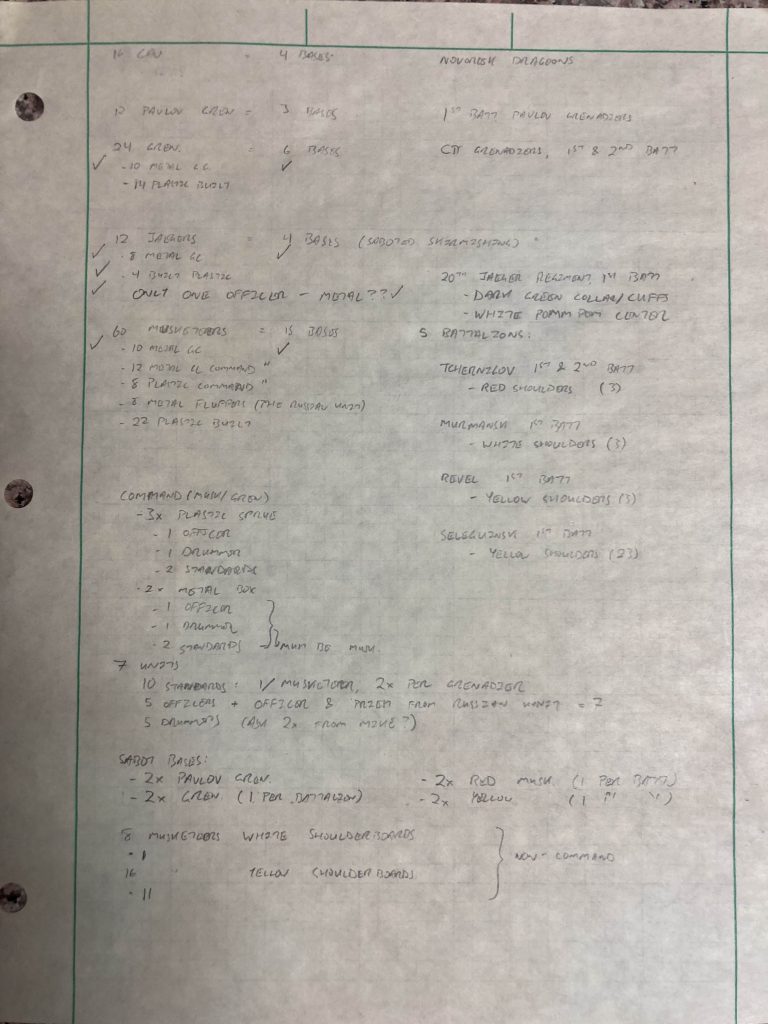 16 CAV = 4 BASES NOVORISK DRAGOONS
12 PAVLOV GREN = 3 BASES 1ST BATT PAVLOV GRENADIERS
24 GREN. = 6 BASES GRENADIERS, 1ST & 2ND BATT
✓ - 10 METAL GC ✓
- 14 PLASTIC BUILT
12 JAEGERS = 4 BASES (SABOTED SKIRMISHING)
✓ - 8 METAL GC ✓
✓ - 4 BUILT PLASTIC 20TH JAEGER REGIMENT, 1ST BATT
✓ ONLY ONE OFFICER - METAL?? ✓ - DARK GREEN COLLAR/CUFFS
- WHITE POMM POM CENTER
60 MUSKETEERS = 15 BASES 5 BATTALIONS:
✓ - 10 METAL GC ✓
- 12 METAL GC COMMAND " TCHERNIGOV 1ST & 2ND BATT
- 8 PLASTIC COMMAND " - RED SHOULDERS (3)
- 8 METAL FLUFFERS (THE RUSSIAN UNIT)
- 22 PLASTIC BUILT MURMANSK 1ST BATT
- WHITE SHOULDERS (3)
REVEL 1ST BATT
COMMAND (MUSK/GREN) - YELLOW SHOULDERS (3)
- 3X PLASTIC SPRUE
- 1 OFFICER SELEGUINSK 1ST BATT
- 1 DRUMMER - YELLOW SHOULDERS (23)
- 2 STANDARDS
- 2X METAL BOX
- 1 OFFICER
- 1 DRUMMER
- 2 STANDARDS MUST BE MUSK.
7 UNITS
10 STANDARDS: 1/MUSKETEER, 2X PER GRENADIER
5 OFFICERS + OFFICER & PRIEST FROM RUSSIAN UNIT = 7
5 DRUMMERS (ASK 2X FROM MIKE?)
SABOT BASES:
- 2X PAVLOV GREN. - 2X RED MUSK (1 PER BATT)
- 2X GREN. (1 PER BATTALION) - 2X YELLOW (1 " ")
8 MUSKETEERS WHITE SHOULDERBOARDS
- 1 NON-COMMAND
16 " YELLOW SHOULDERBOARDS
- 11